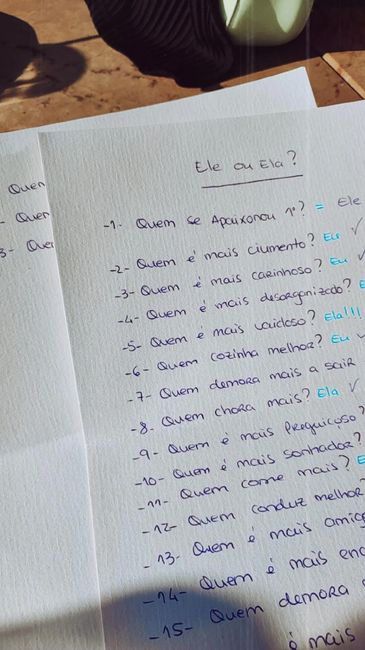 Ele ou Ela?
-1- Quem se Apaixonou 1º? = Ele
-2- Quem é mais ciumento? Eu ✓
-3- Quem é mais carinhoso? Eu ✓
-4- Quem é mais desorganizado?
-5- Quem é mais vaidoso? Ela!!!
-6- Quem cozinha melhor? Eu ✓
-7- Quem demora mais a sair
-8- Quem chora mais? Ela ✓
-9- Quem é mais Preguiçoso?
-10- Quem é mais sonhador?
-11- Quem come mais?
-12- Quem conduz melhor
-13- Quem é mais
-14- Quem é mais
-15- Quem demora
é mais
Quem
- Quem
3- Quem